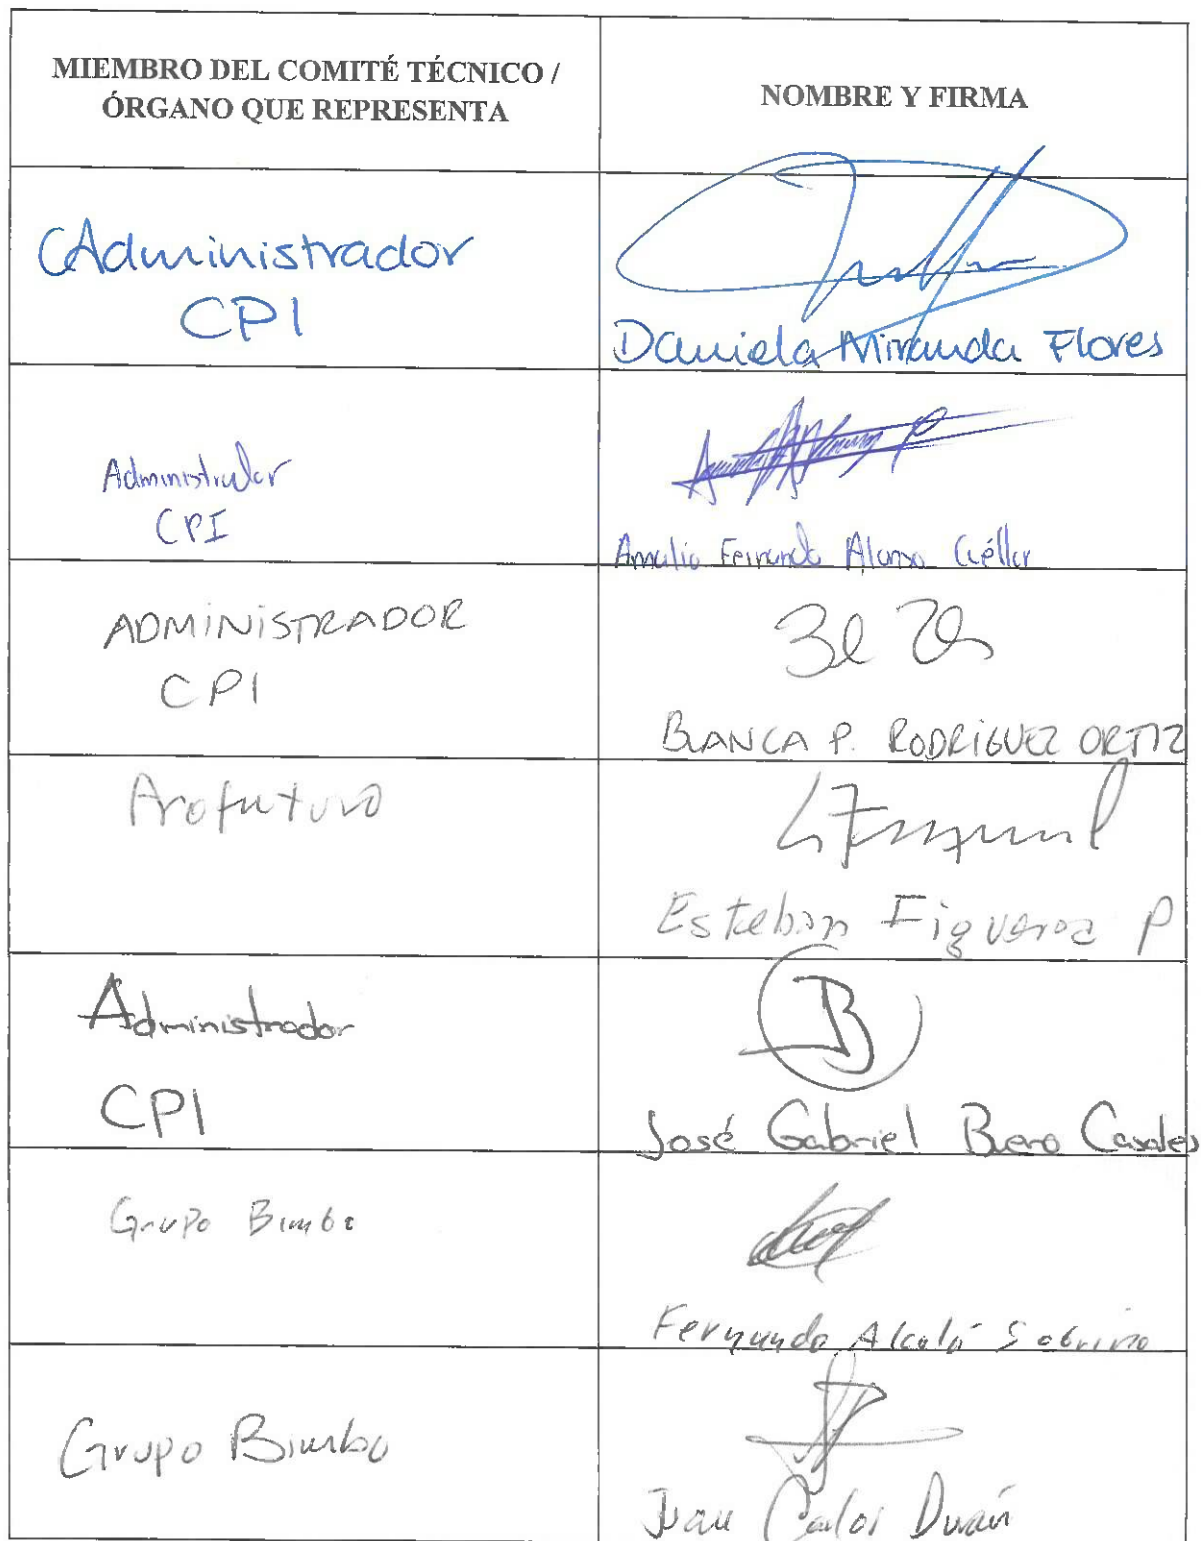 MIEMBRO DEL COMITÉ TÉCNICO /
ÓRGANO QUE REPRESENTA
NOMBRE Y FIRMA
Administrador
CPI
Daniela Miranda Flores
Administrador
CPI
Amalio Fernando Alonso Cuéllar
ADMINISTRADOR
CPI
BLANCA P. RODRIGUEZ ORTIZ
Profuturo
Esteban Figueroa P
Administrador
CPI
B
José Gabriel Buero Casales
Grupo Bimbo
Fernando Alcalá Sobrino
Grupo Bimbo
Juan Carlos Durán